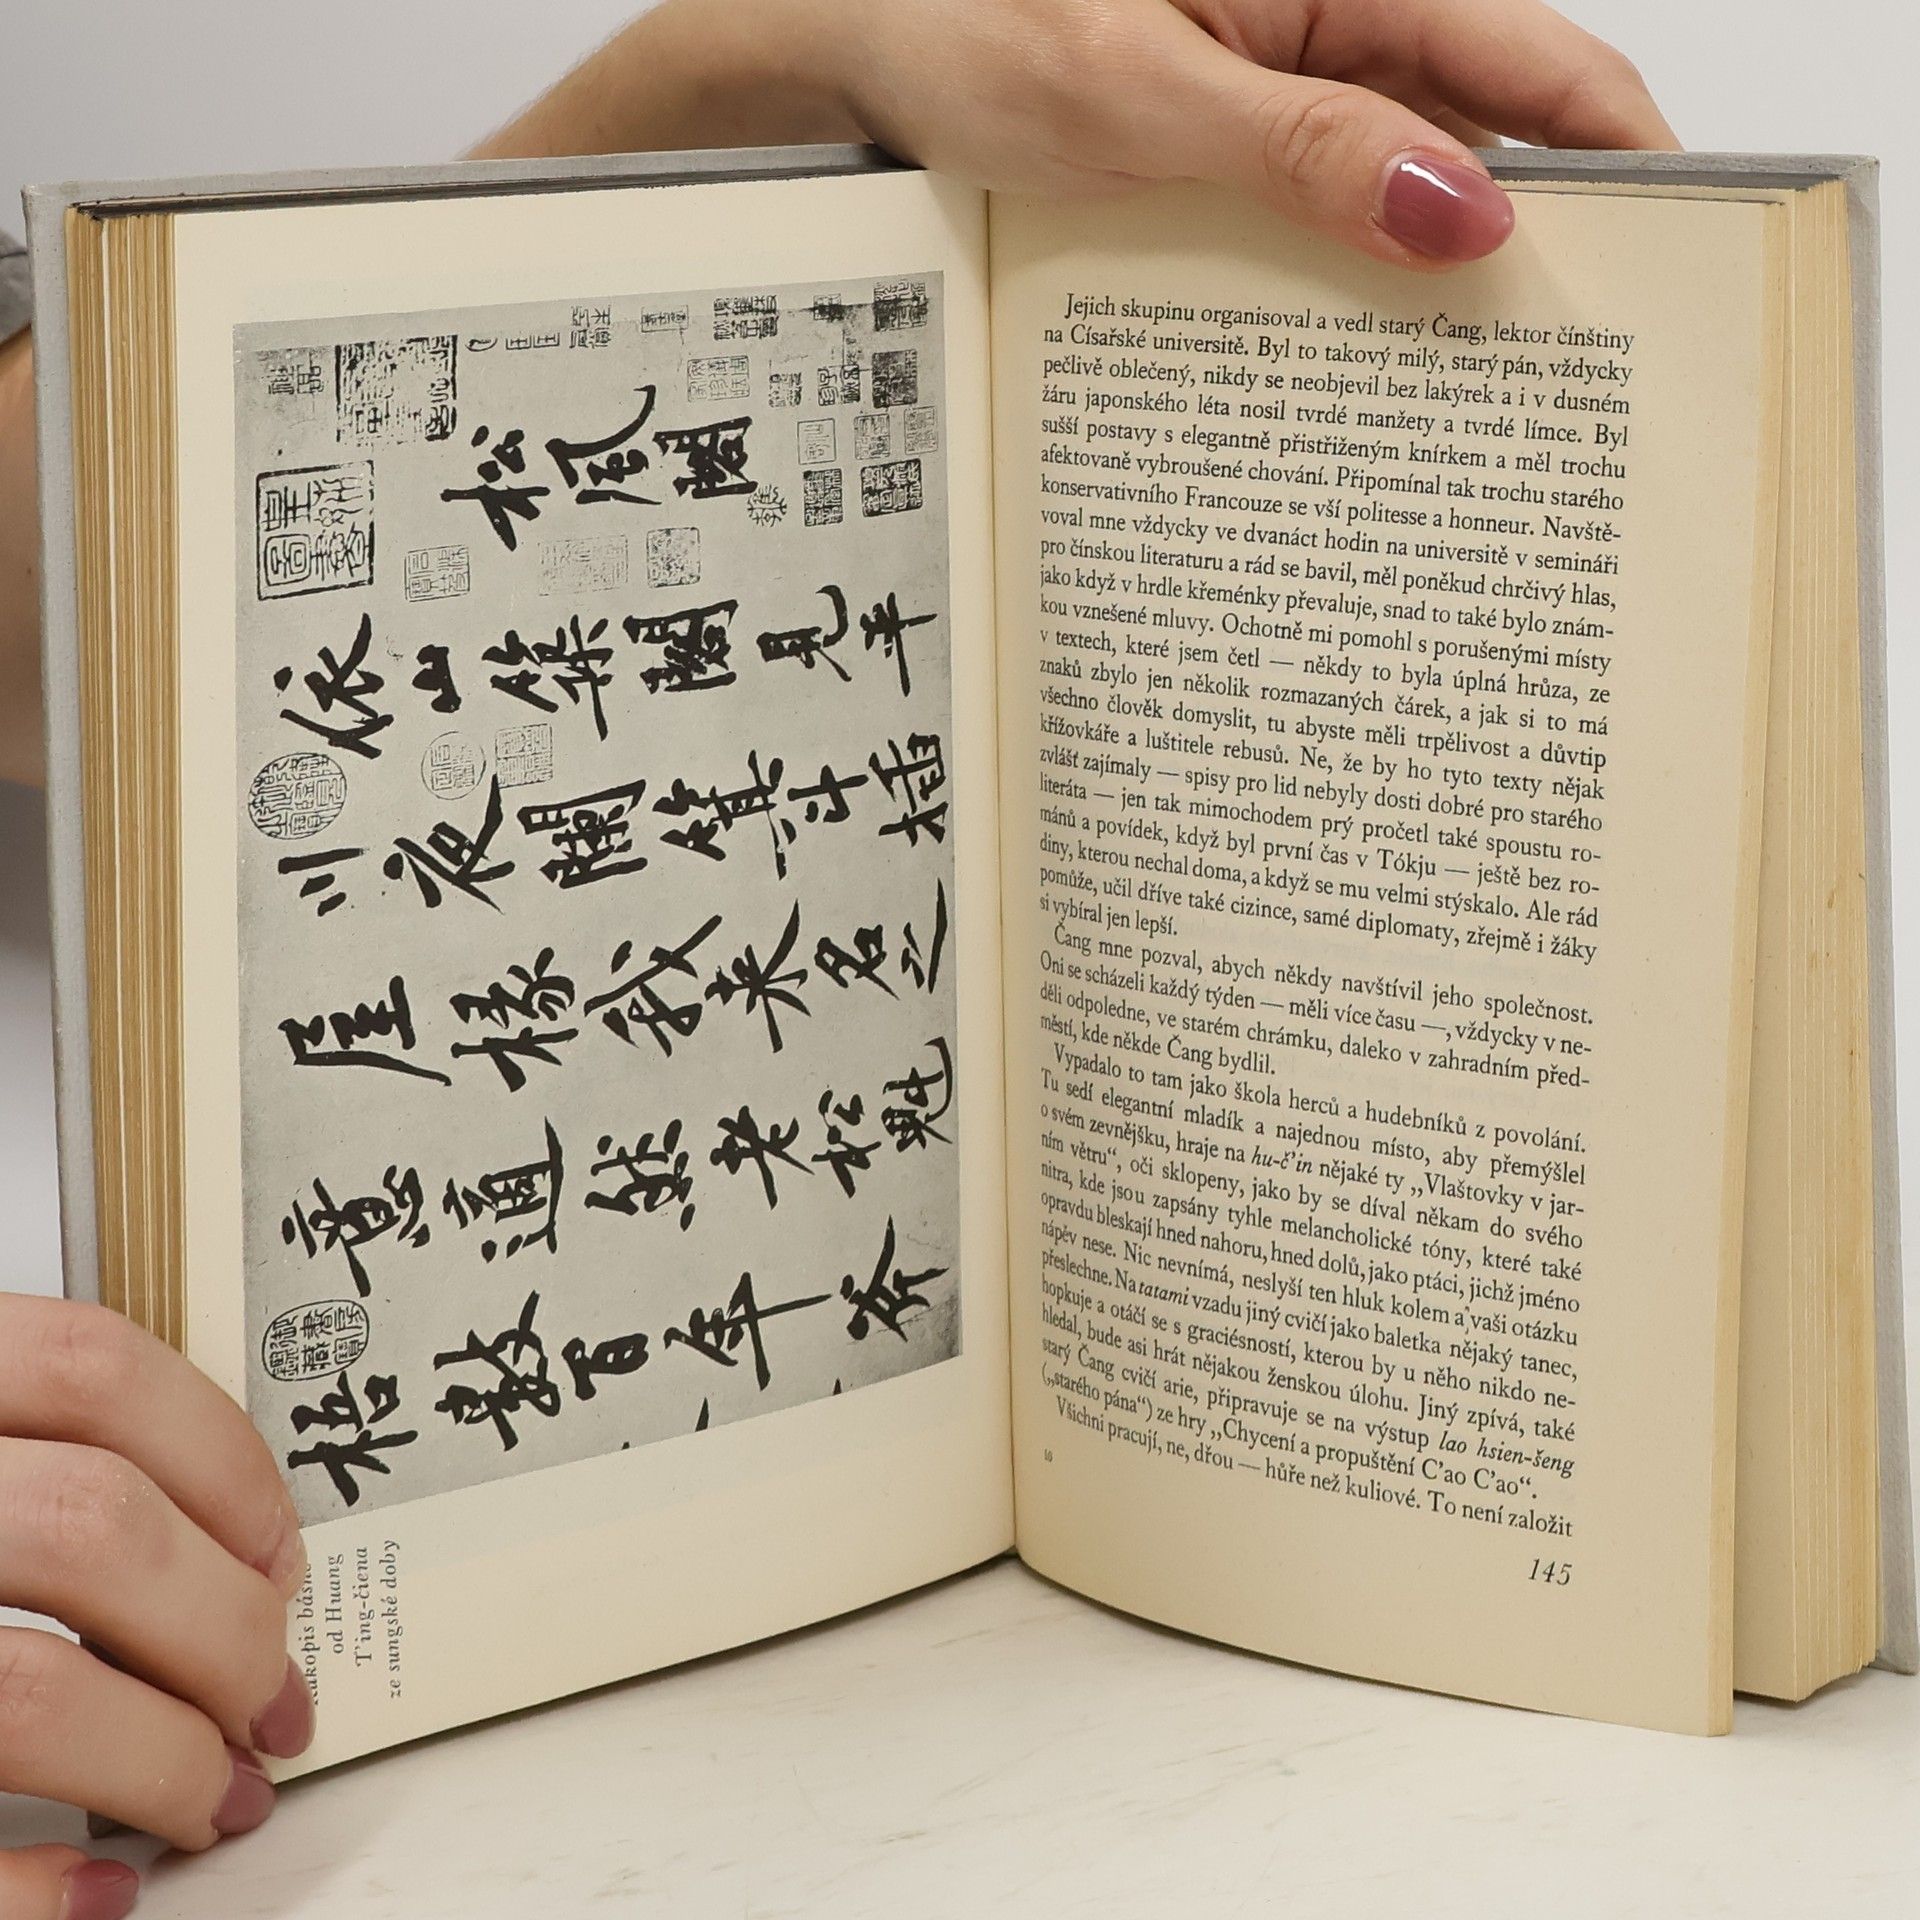 松風閣
依山築閣見平
川夜闌箕斗插
屋椽我來名之
意適然老松魁
梧數百年斧
Rukopis básně
od Huang
T'ing-čiena
ze sungské doby
Jejich skupinu organisoval a vedl starý Čang, lektor čínštiny
na Císařské universitě. Byl to takový milý, starý pán, vždycky
pečlivě oblečený, nikdy se neobjevil bez lakýrek a i v dusném
žáru japonského léta nosil tvrdé manžety a tvrdé límce. Byl
sušší postavy s elegantně přistřiženým knírkem a měl trochu
afektovaně vybroušené chování. Připomínal tak trochu starého
konservativního Francouze se vší politesse a honneur. Navště-
voval mne vždycky ve dvanáct hodin na universitě v semináři
pro čínskou literaturu a rád se bavil, měl poněkud chrčivý hlas,
jako když v hrdle křeménky převaluje, snad to také bylo znám-
kou vznešené mluvy. Ochotně mi pomohl s porušenými místy
v textech, které jsem četl — někdy to byla úplná hrůza, ze
znaků zbylo jen několik rozmazaných čárek, a jak si to má
všechno člověk domyslit, tu abyste měli trpělivost a důvtip
křížovkáře a luštitele rebusů. Ne, že by ho tyto texty nějak
zvlášť zajímaly — spisy pro lid nebyly dosti dobré pro starého
literáta — jen tak mimochodem prý pročetl také spoustu ro-
mánů a povídek, když byl první čas v Tókju — ještě bez ro-
diny, kterou nechal doma, a když se mu velmi stýskalo. Ale rád
pomůže, učil dříve také cizince, samé diplomaty, zřejmě i žáky
si vybíral jen lepší.
Čang mne pozval, abych někdy navštívil jeho společnost.
Oni se scházeli každý týden — měli více času —, vždycky v ne-
děli odpoledne, ve starém chrámku, daleko v zahradním před-
městí, kde někde Čang bydlil.
Vypadalo to tam jako škola herců a hudebníků z povolání.
Tu sedí elegantní mladík a najednou místo, aby přemýšlel
o svém zevnějšku, hraje na hu-č'in nějaké ty „Vlaštovky v jar-
ním větru“, oči sklopeny, jako by se díval někam do svého
nitra, kde jsou zapsány tyhle melancholické tóny, které také
opravdu bleskají hned nahoru, hned dolů, jako ptáci, jichž jméno
nápěv nese. Nic nevnímá, neslyší ten hluk kolem a vaši otázku
přeslechne. Na tatami vzadu jiný cvičí jako baletka nějaký tanec,
hopkuje a otáčí se s graciésností, kterou by u něho nikdo ne-
hledal, bude asi hrát nějakou ženskou úlohu. Jiný zpívá, také
starý Čang cvičí arie, připravuje se na výstup lao hsien-šeng
(„starého pána“) ze hry „Chycení a propuštění C'ao C'ao“.
Všichni pracují, ne, dřou — hůře než kuliové. To není založit
10
145